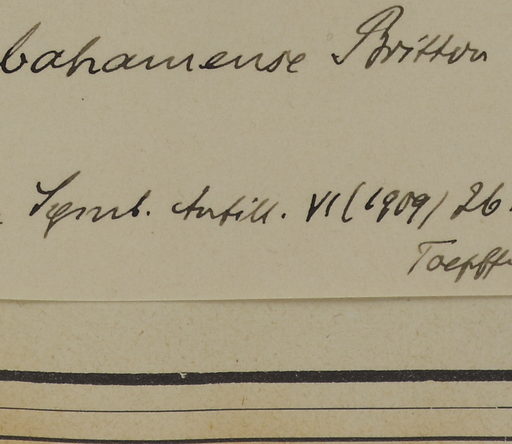 bahamense Britton
Symb. Antill. VI (1909) 26
Toepff